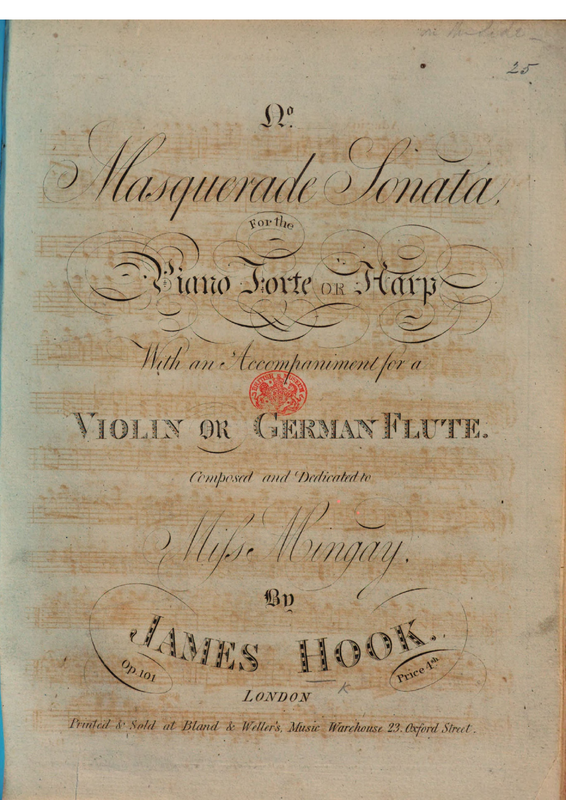 25
No.
Masquerade Sonata,
For the
Piano Forte OR Harp
With an Accompaniment for a
BRITISH MUSEUM
VIOLIN OR GERMAN FLUTE.
Composed and Dedicated to
Miſs Mingay.
By
JAMES HOOK.
Op. 101
Price 4sh
LONDON
Printed & Sold at Bland & Weller's, Music Warehouse 23, Oxford Street.